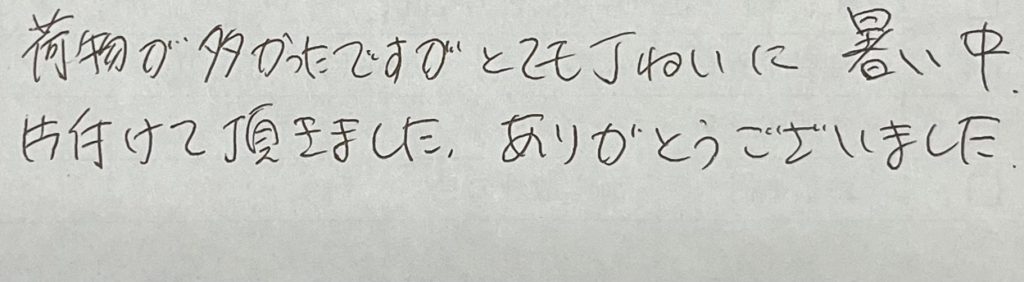 荷物が多かったですがとても丁ねいに暑い中、
片付けて頂きました。ありがとうございました。